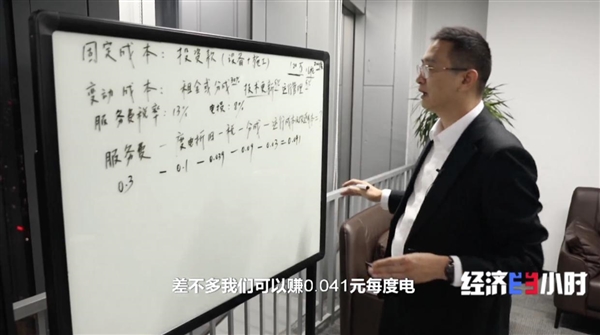 固定成本：投资款（设备+施工）
变动成本：租金或分成 技术更新 运行管理
服务费税率：13% 电损：8%
服务费 — 度电折旧 — 税 — 分成 — 运行成本
0.3 — 0.1 — 0.039 — 0.09 — 0.03 = 0.041
差不多我们可以赚0.041元每度电
经济半小时